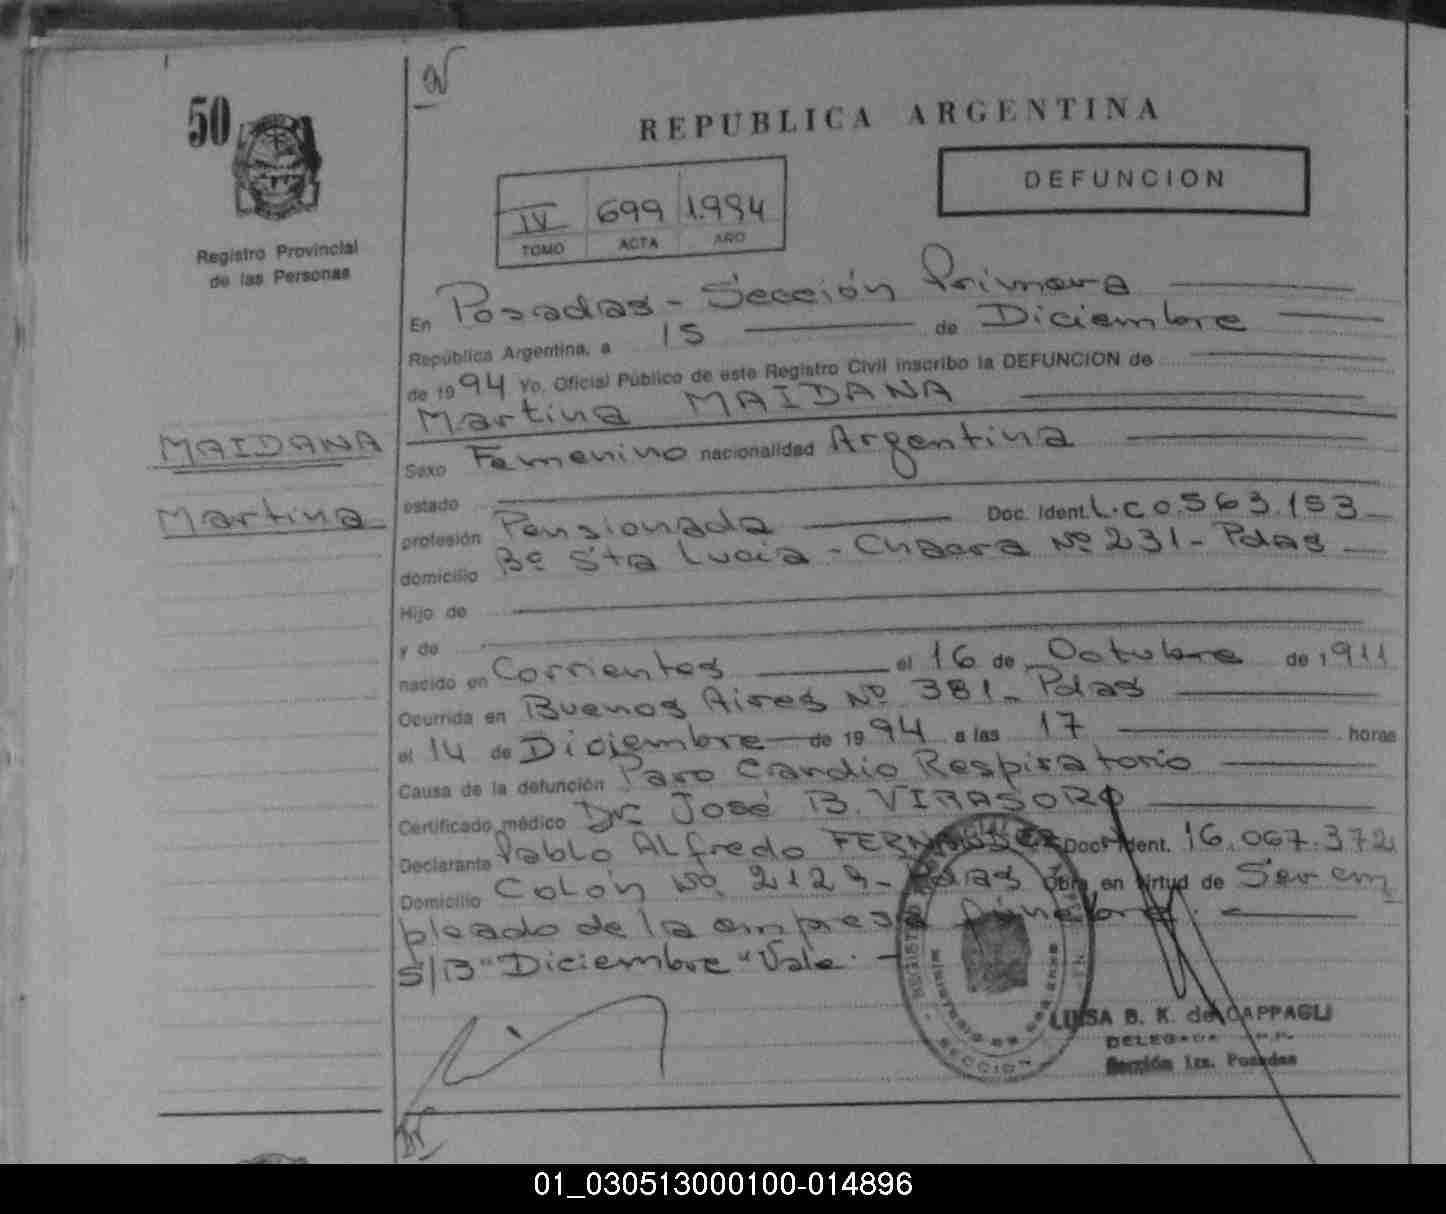 50
Registro Provincial
de las Personas
REPUBLICA ARGENTINA
DEFUNCION
IV 699 1.994
TOMO ACTA AÑO
En Posadas - Sección Primera
República Argentina, a 15 de Diciembre
de 1994 Yo, Oficial Público de este Registro Civil inscribo la DEFUNCION de
Martina MAIDANA
MAIDANA
Martina
Sexo Femenino nacionalidad Argentina
estado
profesión Pensionada Doc. Ident. L.C 0.563.153
domicilio Bº Sta Lucia - Chacra Nº 231 - Pdas
Hijo de
y de
nacido en Corrientes el 16 de Octubre de 1911
Ocurrida en Buenos Aires Nº 381 - Pdas
el 14 de Diciembre de 1994 a las 17 horas
Causa de la defunción Paro Cardio Respiratorio
Certificado médico Dr. José B. VIRASORO
Declarante Pablo Alfredo FERNANDEZ Doc. Ident. 16.067.372
Domicilio Colón Nº 2129 - Pdas Obra en virtud de Ser em
pleado de la empresa fúnebre. -
S/B "Diciembre" Vale. -
LUISA B. K. de CAPPAGLI
DELEGADA
Sección 1ra. Posadas
SECCION
01_030513000100-014896